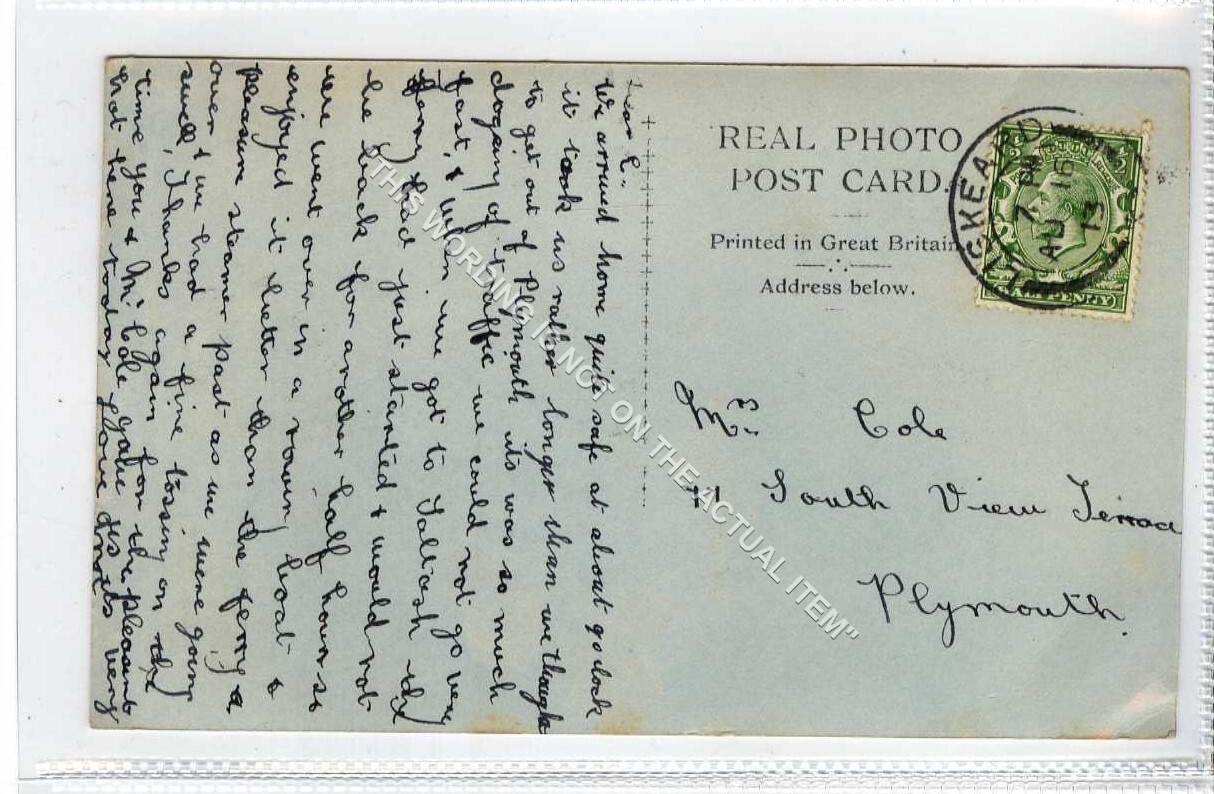 REAL PHOTO
POST CARD.
Printed in Great Britain
Address below.
LISKEARD
7 PM
AU 16
13
HALFPENNY
Mrs Cole
South View Terrace
Plymouth.
Dear C.
We arrived home quite safe at about 9 oclock
it took us rather longer than we thought
to get out of Plymouth its was so much
dogany of traffic we could not go very
fast, & when we got to Saltash the
ferry had just started & would not
be back for another half hour so
we went over in a rowing boat &
enjoyed it better than the ferry a
pleasure steamer past as we were going
over & we had a fine tossing on the
swell, Thanks again for the pleasant
time you & Mr Cole gave us its very
hot here today love
"THIS WORDING IS NOT ON THE ACTUAL ITEM"